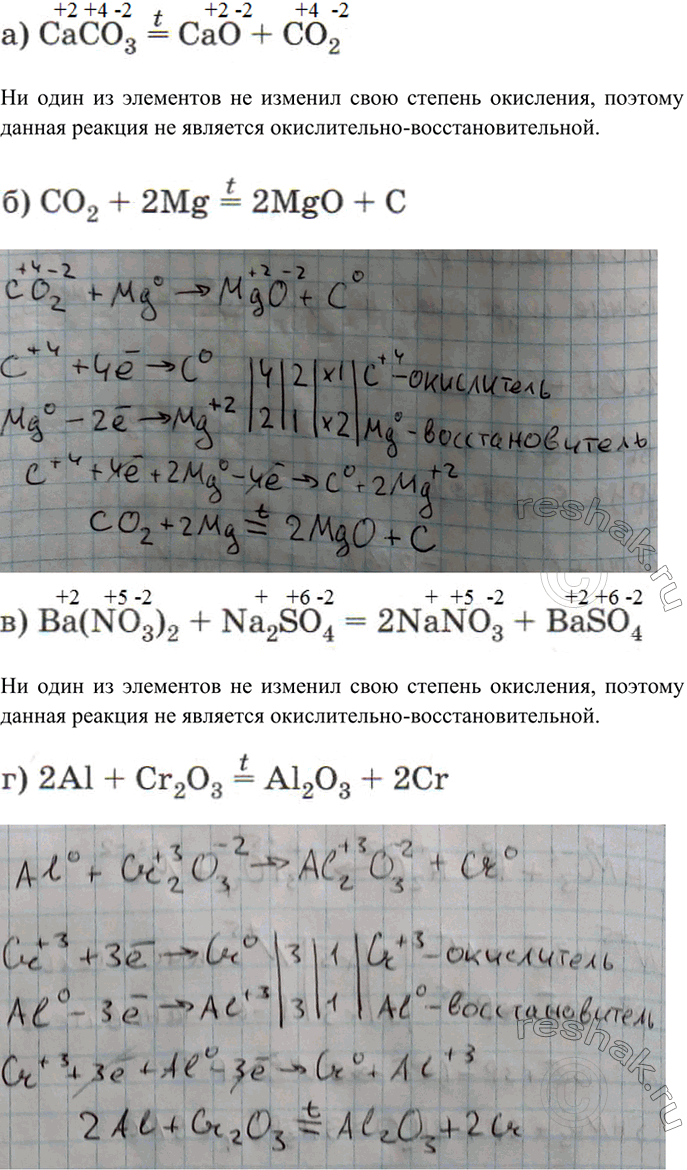 +2 +4 -2 +2 -2 +4 -2
а) CaCO₃ =ᵗ CaO + CO₂
Ни один из элементов не изменил свою степень окисления, поэтому
данная реакция не является окислительно-восстановительной.
б) CO₂ + 2Mg =ᵗ 2MgO + C
+4 -2 +2 -2
CO₂ + Mg⁰ → MgO + C⁰
C⁺⁴ + 4ē → C⁰ | 4 | 2 | ×1 | C⁺⁴ - окислитель
Mg⁰ - 2ē → Mg⁺² | 2 | 1 | ×2 | Mg⁰ - восстановитель
C⁺⁴ + 4ē + 2Mg⁰ - 4ē → C⁰ + 2Mg⁺²
CO₂ + 2Mg =ᵗ 2MgO + C
reshak.ru
+2 +5 -2 + +6 -2 + +5 -2 +2 +6 -2
в) Ba(NO₃)₂ + Na₂SO₄ = 2NaNO₃ + BaSO₄
Ни один из элементов не изменил свою степень окисления, поэтому
данная реакция не является окислительно-восстановительной.
г) 2Al + Cr₂O₃ =ᵗ Al₂O₃ + 2Cr
Al⁰ + Cr₂⁺³O₃⁻² → Al₂⁺³O₃⁻² + Cr⁰
Cr⁺³ + 3ē → Cr⁰ | 3 | 1 | Cr⁺³ - окислитель
Al⁰ - 3ē → Al⁺³ | 3 | 1 | Al⁰ - восстановитель
Cr⁺³ + 3ē + Al⁰ - 3ē → Cr⁰ + Al⁺³
2Al + Cr₂O₃ =ᵗ Al₂O₃ + 2Cr
reshak.ru